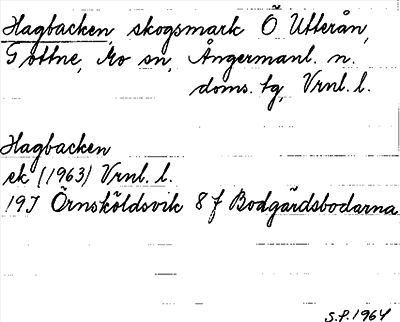 Hagbacken, skogsmark Ö Utterån,
Gottne, Mo sn, Ångermanl. n.
doms. tg, Vrnl. l.
Hagbacken
ek (1963) Vrnl. l.
19I Örnsköldsvik 8 f Bodgårdsbodarna
S.P. 1964